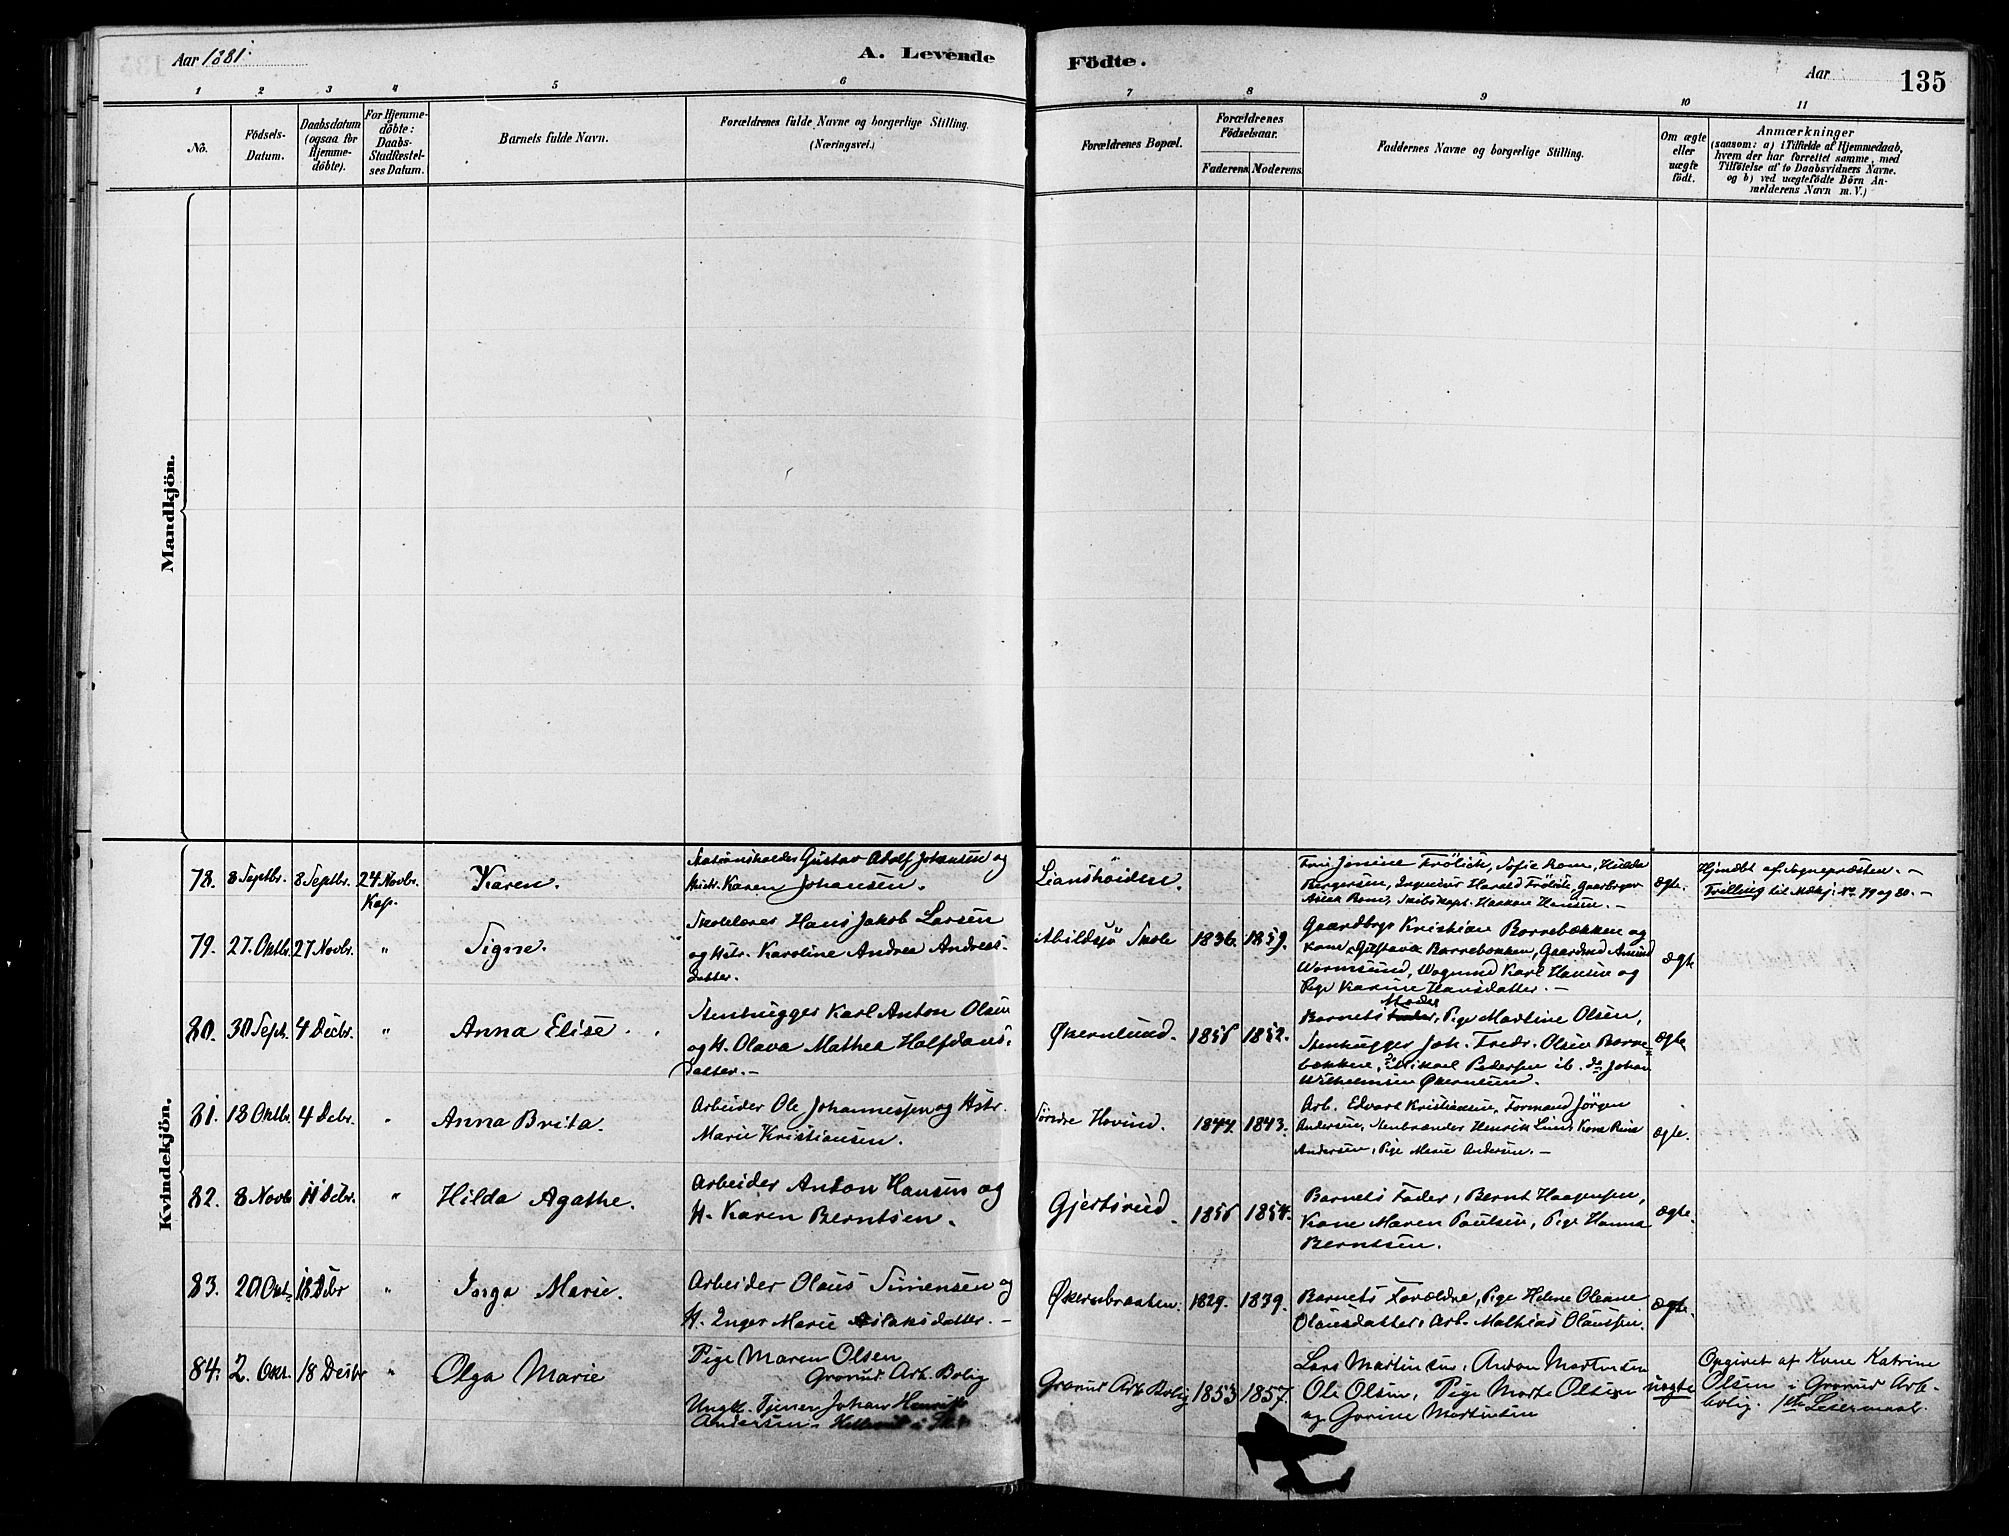 Aar 1881.
A. Levende Födte.
Aar
135
1 2 3 4 5 6 7 8 9 10 11
No.
Födsels-
Datum.
Daabsdatum
(ogsaa for
Hjemme-
döbte).
For Hjemme-
döbte:
Daabs-
Stadfæstel-
ses Datum.
Barnets fulde Navn.
Forældrenes fulde Navne og borgerlige Stilling.
(Næringsvei.)
Forældrenes Bopæl.
Forældrenes
Födselsaar.
Faderens. Moderens.
Faddernes Navne og borgerlige Stilling.
Om ægte
eller
uægte
födt.
Anmærkninger
(saasom: a) i Tilfælde af Hjemmedaab,
hvem der har forrettet samme, med
Tilföielse af to Daabsvidners Navne.
og b) ved uægtefödte Börn An-
melderens Navn m. V.)
Mandkjön.
Kvindekjön.
78. 8 Septbr. 8 Septbr. 24 Novbr.
Kap.
Karen.
Stationsholder Gustav Adolf Johansen og
Hustr. Karen Johansen.
Lianshöiden.
Jonine Frölich, Sofie Rom, Hulda
Bergersen, Ingeniør Harald Frölich, Gaardbruger
Rom, Skibskapt. Haakon Hansen. —
ægte.
Hjmdöbt af Sognepræsten. —
Trilling til Mdkj. No 79 og 80. —
79. 27. Oktbr. 27 Novbr. "
Signe.
Skolelærer Hans Jakob Larsen
og Hstr. Karoline Andrea Andreas-
datter.
Abildsø Skole
1836. 1859.
Gaardbrgr Kristian Borrebækken og
Kone Gustava Borrebækken, Gaardmd Amund
Wormsund, Vognmd Karl Hansen og
Pige Karine Hansdatter. —
ægte
80. 30 Septr. 4 Decbr. "
Anna Elise.
Stenhugger Karl Anton Olsen
og H. Olava Mathea Halfdans-
datter. —
Økernlund.
1852.
Moder
Barnets Fader, Pige Martine Olsen,
Stenhugger Joh. Fredr. Olsen Borre-
bækken, Do Mikael Pedersen ib. do Johan
Wilhelmsen Økernlund.
ægte
81. 18 Oktbr. 4 Debr. "
Anna Brita.
Arbeider Ole Johannessen og Hstr.
Marie Kristiansen.
Søndre Hovind.
1844. 1843.
Arb. Edvart Kristiansen, Formand Jörgen
Andersen, Stenbrænder Henrik Lund, Kone Rina
Andersen, Pige Marie Andersen. —
ægte.
82. 8 Novbr 11 Debr. "
Hilda Agathe.
Arbeider Anton Hansen og
H. Karen Berntsen.
Gjertsrud
1854.
Barnets Fader, Bernt Haagensen,
Kone Maren Paulsen, Pige Hanna
Berntsen.
ægte.
83. 20 Okt. 18 Debr "
Inga Marie.
Arbeider Olaus Simensen og
H. Inger Marie Aslaksdatter. —
Økernbraaten.
1829. 1839.
Barnets Forældre, Pige Helene Oleane
Olausdatter, Arb. Mathias Olaussen.
ægte.
84. 2. Okt. 18 Desbr "
Olga Marie
Pige Maren Olsen
Grorud Arb. Bolig
Ungk. Tjener Johan Henrik
Andersen.
Grorud Arb. Bolig
1853 1857.
Lars Martinsen, Anton Martinsen
Ole Olsen, Pige Marte Olsen
og Gorine Martinsen
uægte
Opgivet af Kone Katrine
Olsen i Grorud Arb-
bolig. 1ste Leiermaal.